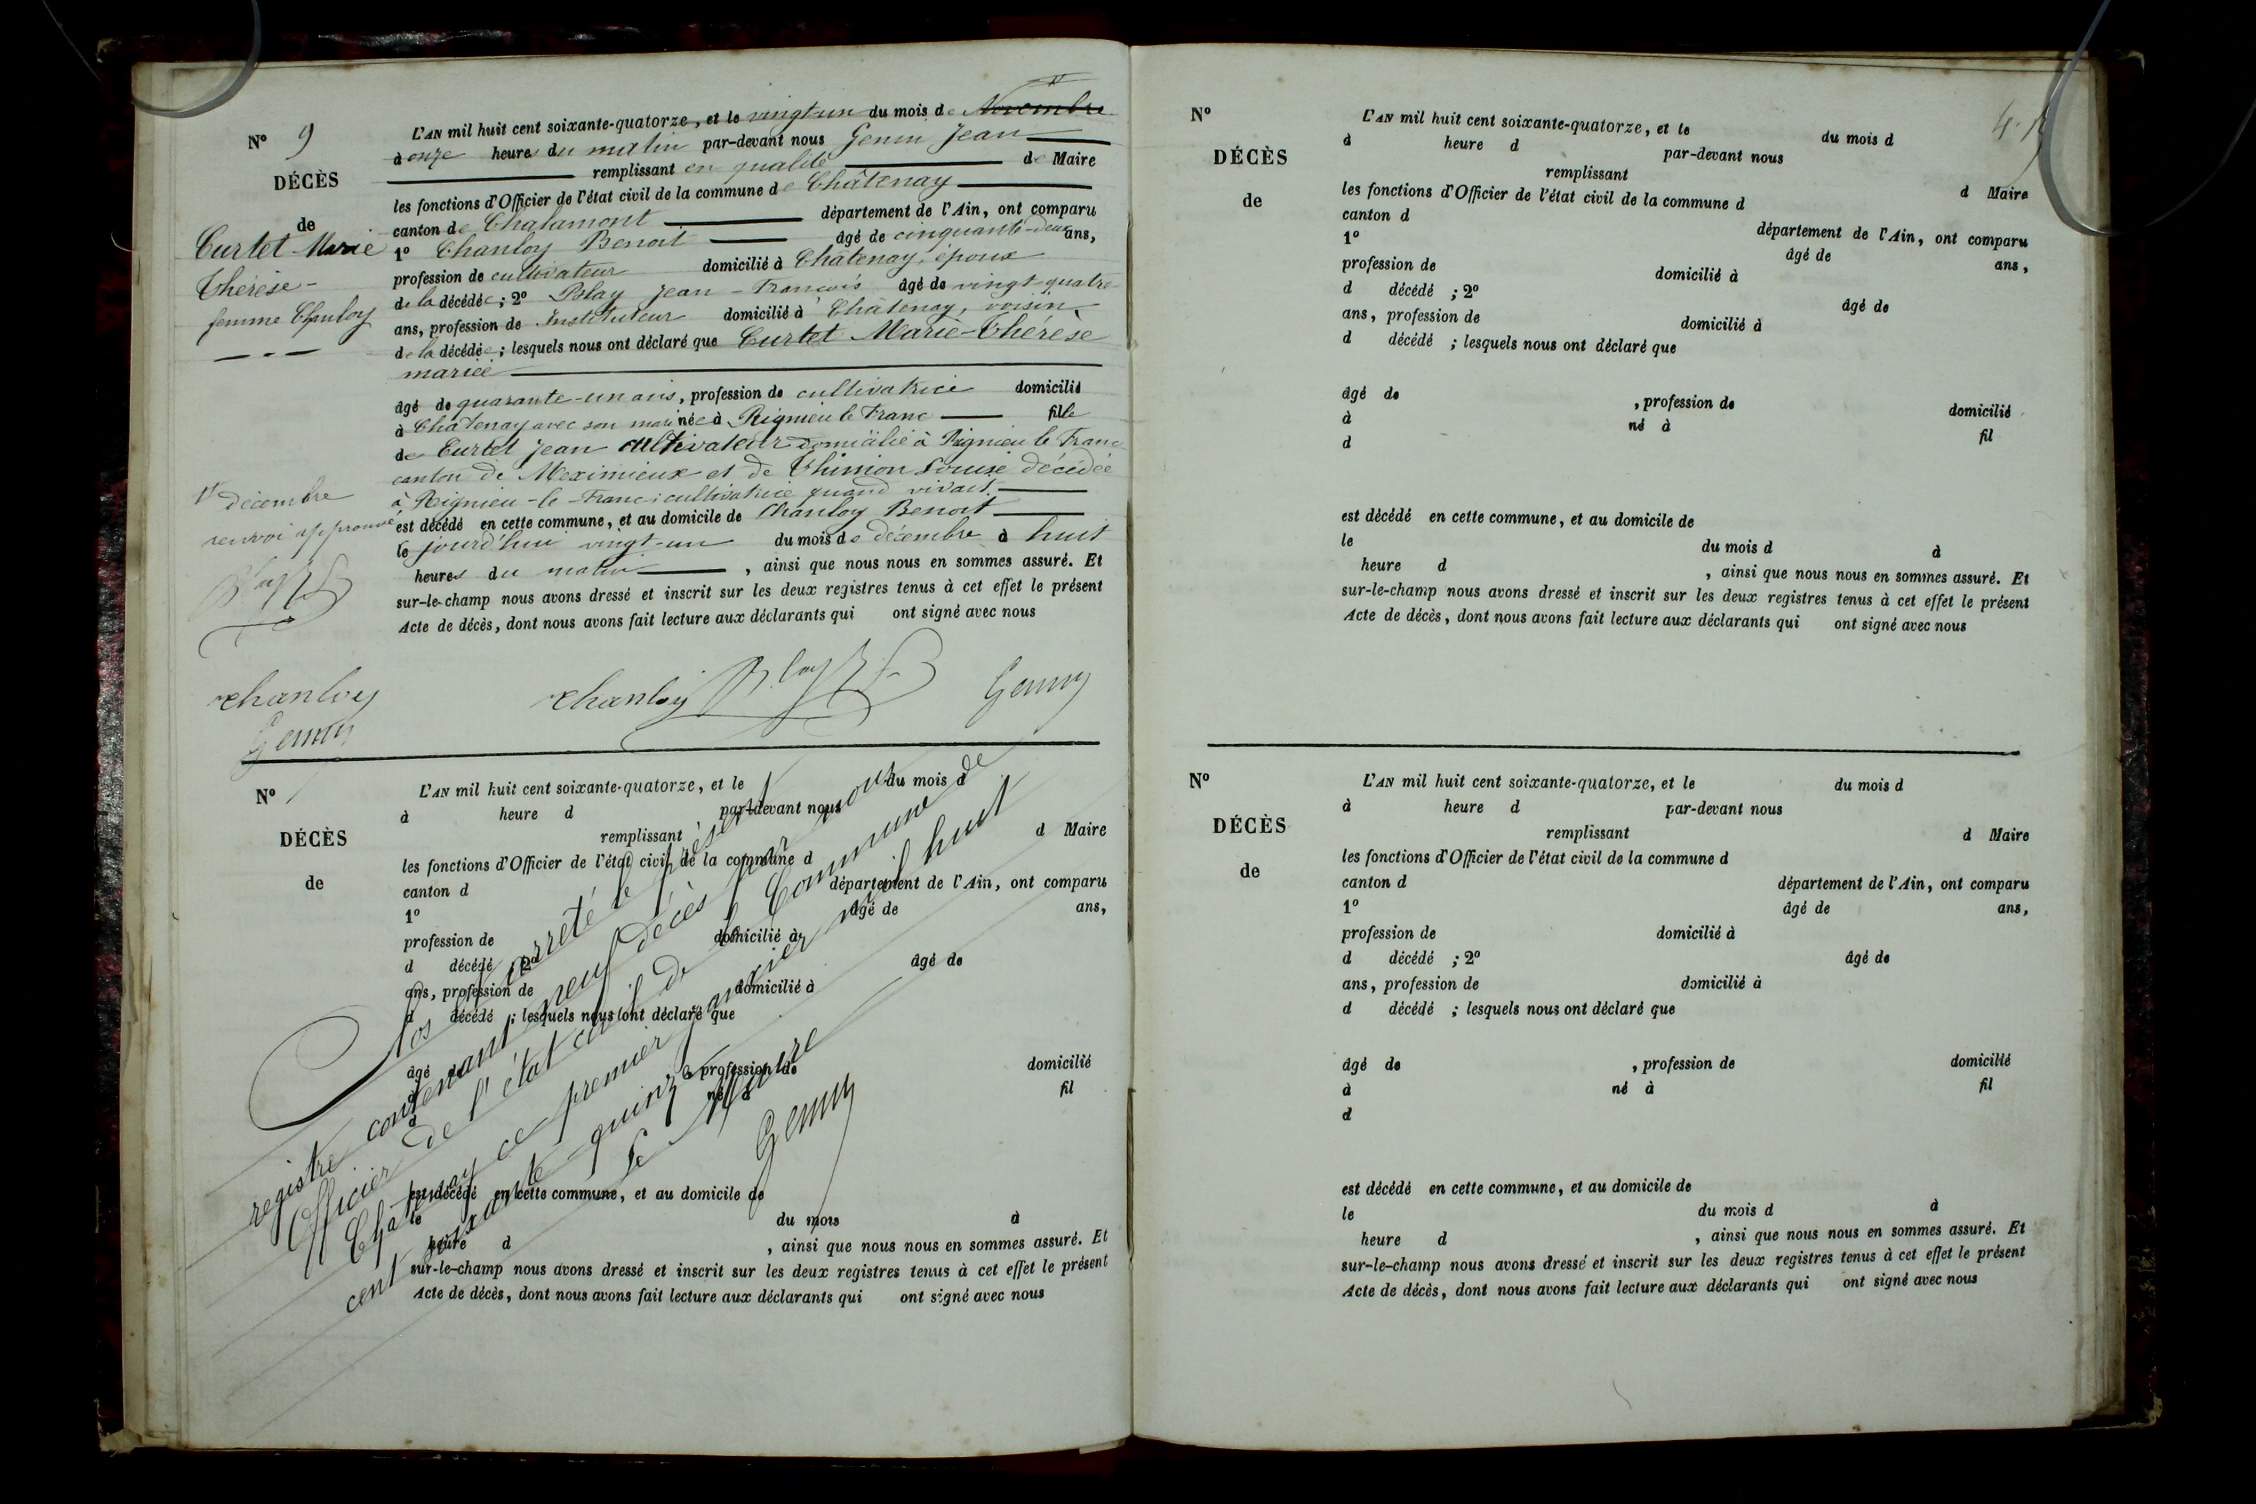 Nº 9
DÉCÈS
de
Curtet Marie
Thérèse -
femme Chanloy
L'AN mil huit cent soixante-quatorze, et le vingt un du mois de Novembre
à onze heures du matin par-devant nous Genin Jean
remplissant en qualité de Maire
les fonctions d'Officier de l'état civil de la commune de Châtenay
canton de Chalamont département de l'Ain, ont comparu
1º Chanloy Benoit âgé de cinquante-deux ans,
profession de cultivateur domicilié à Châtenay, époux
de la décédée ; 2º Blay Jean-François âgé de vingt-quatre
ans, profession de Instituteur domicilié à Châtenay, voisin
de la décédée ; lesquels nous ont déclaré que Curtet Marie-Thérèse
mariée
âgé de quarante-un ans, profession de cultivatrice domicilié
à Châtenay avec son mari née à Rignieu le Franc fille
de Curtet Jean cultivateur domicilié à Rignieu le Franc
canton de Meximieux et de Thimon Louise décédée
à Rignieu-le-Franc, cultivatrice quand vivait.
est décédé en cette commune, et au domicile de Chanloy Benoit
le jourd'hui vingt-un du mois de décembre à huit
heures du matin , ainsi que nous nous en sommes assuré. Et
sur-le-champ nous avons dressé et inscrit sur les deux registres tenus à cet effet le présent
Acte de décès, dont nous avons fait lecture aux déclarants qui ont signé avec nous
décembre
renvoi approuvé
Blay
chanloy
Genin
chanloy Blay Genin
Nº
DÉCÈS
de
L'AN mil huit cent soixante-quatorze, et le du mois d
à heure d par-devant nous
remplissant d Maire
les fonctions d'Officier de l'état civil de la commune d
canton d département de l'Ain, ont comparu
1º âgé de ans,
profession de domicilié à
d décédé ; 2º âgé de
ans, profession de domicilié à
d décédé ; lesquels nous ont déclaré que
âgé de , profession de domicilié
à né à fil
d
est décédé en cette commune, et au domicile de
le du mois à
heure d , ainsi que nous nous en sommes assuré. Et
sur-le-champ nous avons dressé et inscrit sur les deux registres tenus à cet effet le présent
Acte de décès, dont nous avons fait lecture aux déclarants qui ont signé avec nous
Clos et arrêté le présent
registre contenant neuf décès par nous
Officier de l'état civil de la Commune de
Châtenay ce premier janvier mil huit
cent soixante-quinze
Le Maire
Genin
Nº
DÉCÈS
de
L'AN mil huit cent soixante-quatorze, et le du mois d
à heure d par-devant nous
remplissant d Maire
les fonctions d'Officier de l'état civil de la commune d
canton d département de l'Ain, ont comparu
1º âgé de ans,
profession de domicilié à
d décédé ; 2º âgé de
ans, profession de domicilié à
d décédé ; lesquels nous ont déclaré que
âgé de , profession de domicilié
à né à fil
d
est décédé en cette commune, et au domicile de
le du mois d à
heure d , ainsi que nous nous en sommes assuré. Et
sur-le-champ nous avons dressé et inscrit sur les deux registres tenus à cet effet le présent
Acte de décès, dont nous avons fait lecture aux déclarants qui ont signé avec nous
Nº
DÉCÈS
de
L'AN mil huit cent soixante-quatorze, et le du mois d
à heure d par-devant nous
remplissant d Maire
les fonctions d'Officier de l'état civil de la commune d
canton d département de l'Ain, ont comparu
1º âgé de ans,
profession de domicilié à
d décédé ; 2º âgé de
ans, profession de domicilié à
d décédé ; lesquels nous ont déclaré que
âgé de , profession de domicilié
à né à fil
d
est décédé en cette commune, et au domicile de
le du mois d à
heure d , ainsi que nous nous en sommes assuré. Et
sur-le-champ nous avons dressé et inscrit sur les deux registres tenus à cet effet le présent
Acte de décès, dont nous avons fait lecture aux déclarants qui ont signé avec nous